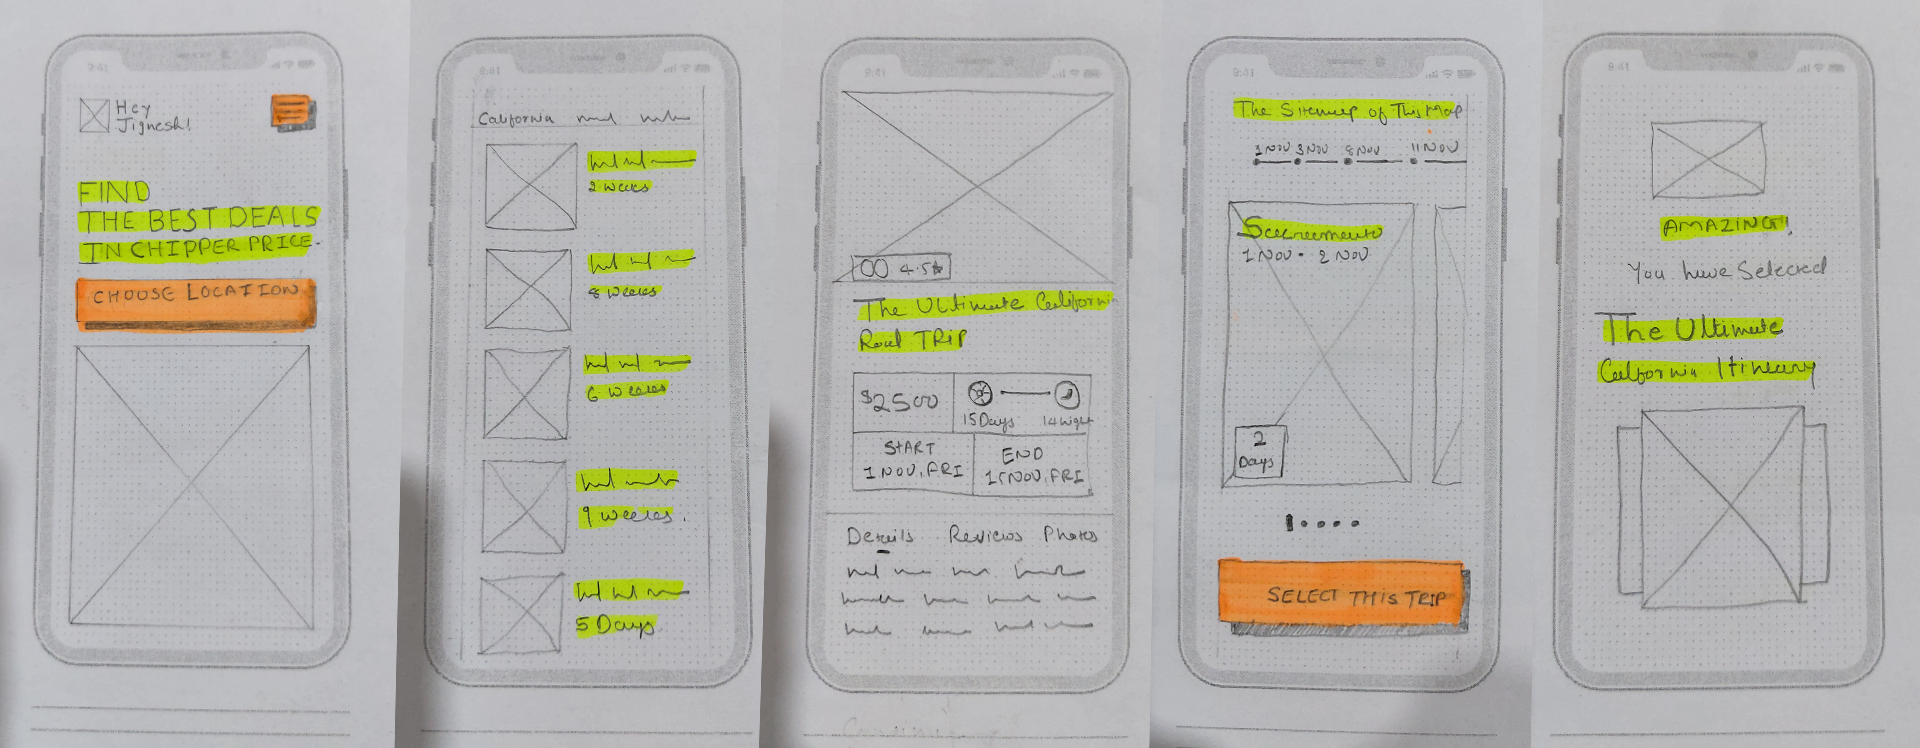 9:41
Hey
Jignesh!
FIND
THE BEST DEALS
IN CHIPPER PRICE.
CHOOSE LOCATION
9:41
California
2 weeks
8 weeks
6 weeks
9 weeks.
5 Days
9:41
4.5
The Ultimate California
Road TRIP
$2500
15 Days
START
1 NOV, FRI
END
15 NOV, FRI
Details Reviews Photos
9:41
The Sitemap of This Map
1 NOV 3 NOV 8 NOV 11 NOV
Sacreemento
1 NOV - 2 NOV
2
Days
SELECT THIS TRIP
9:41
AMAZING!
You have Selected
The Ultimate
California Itineary